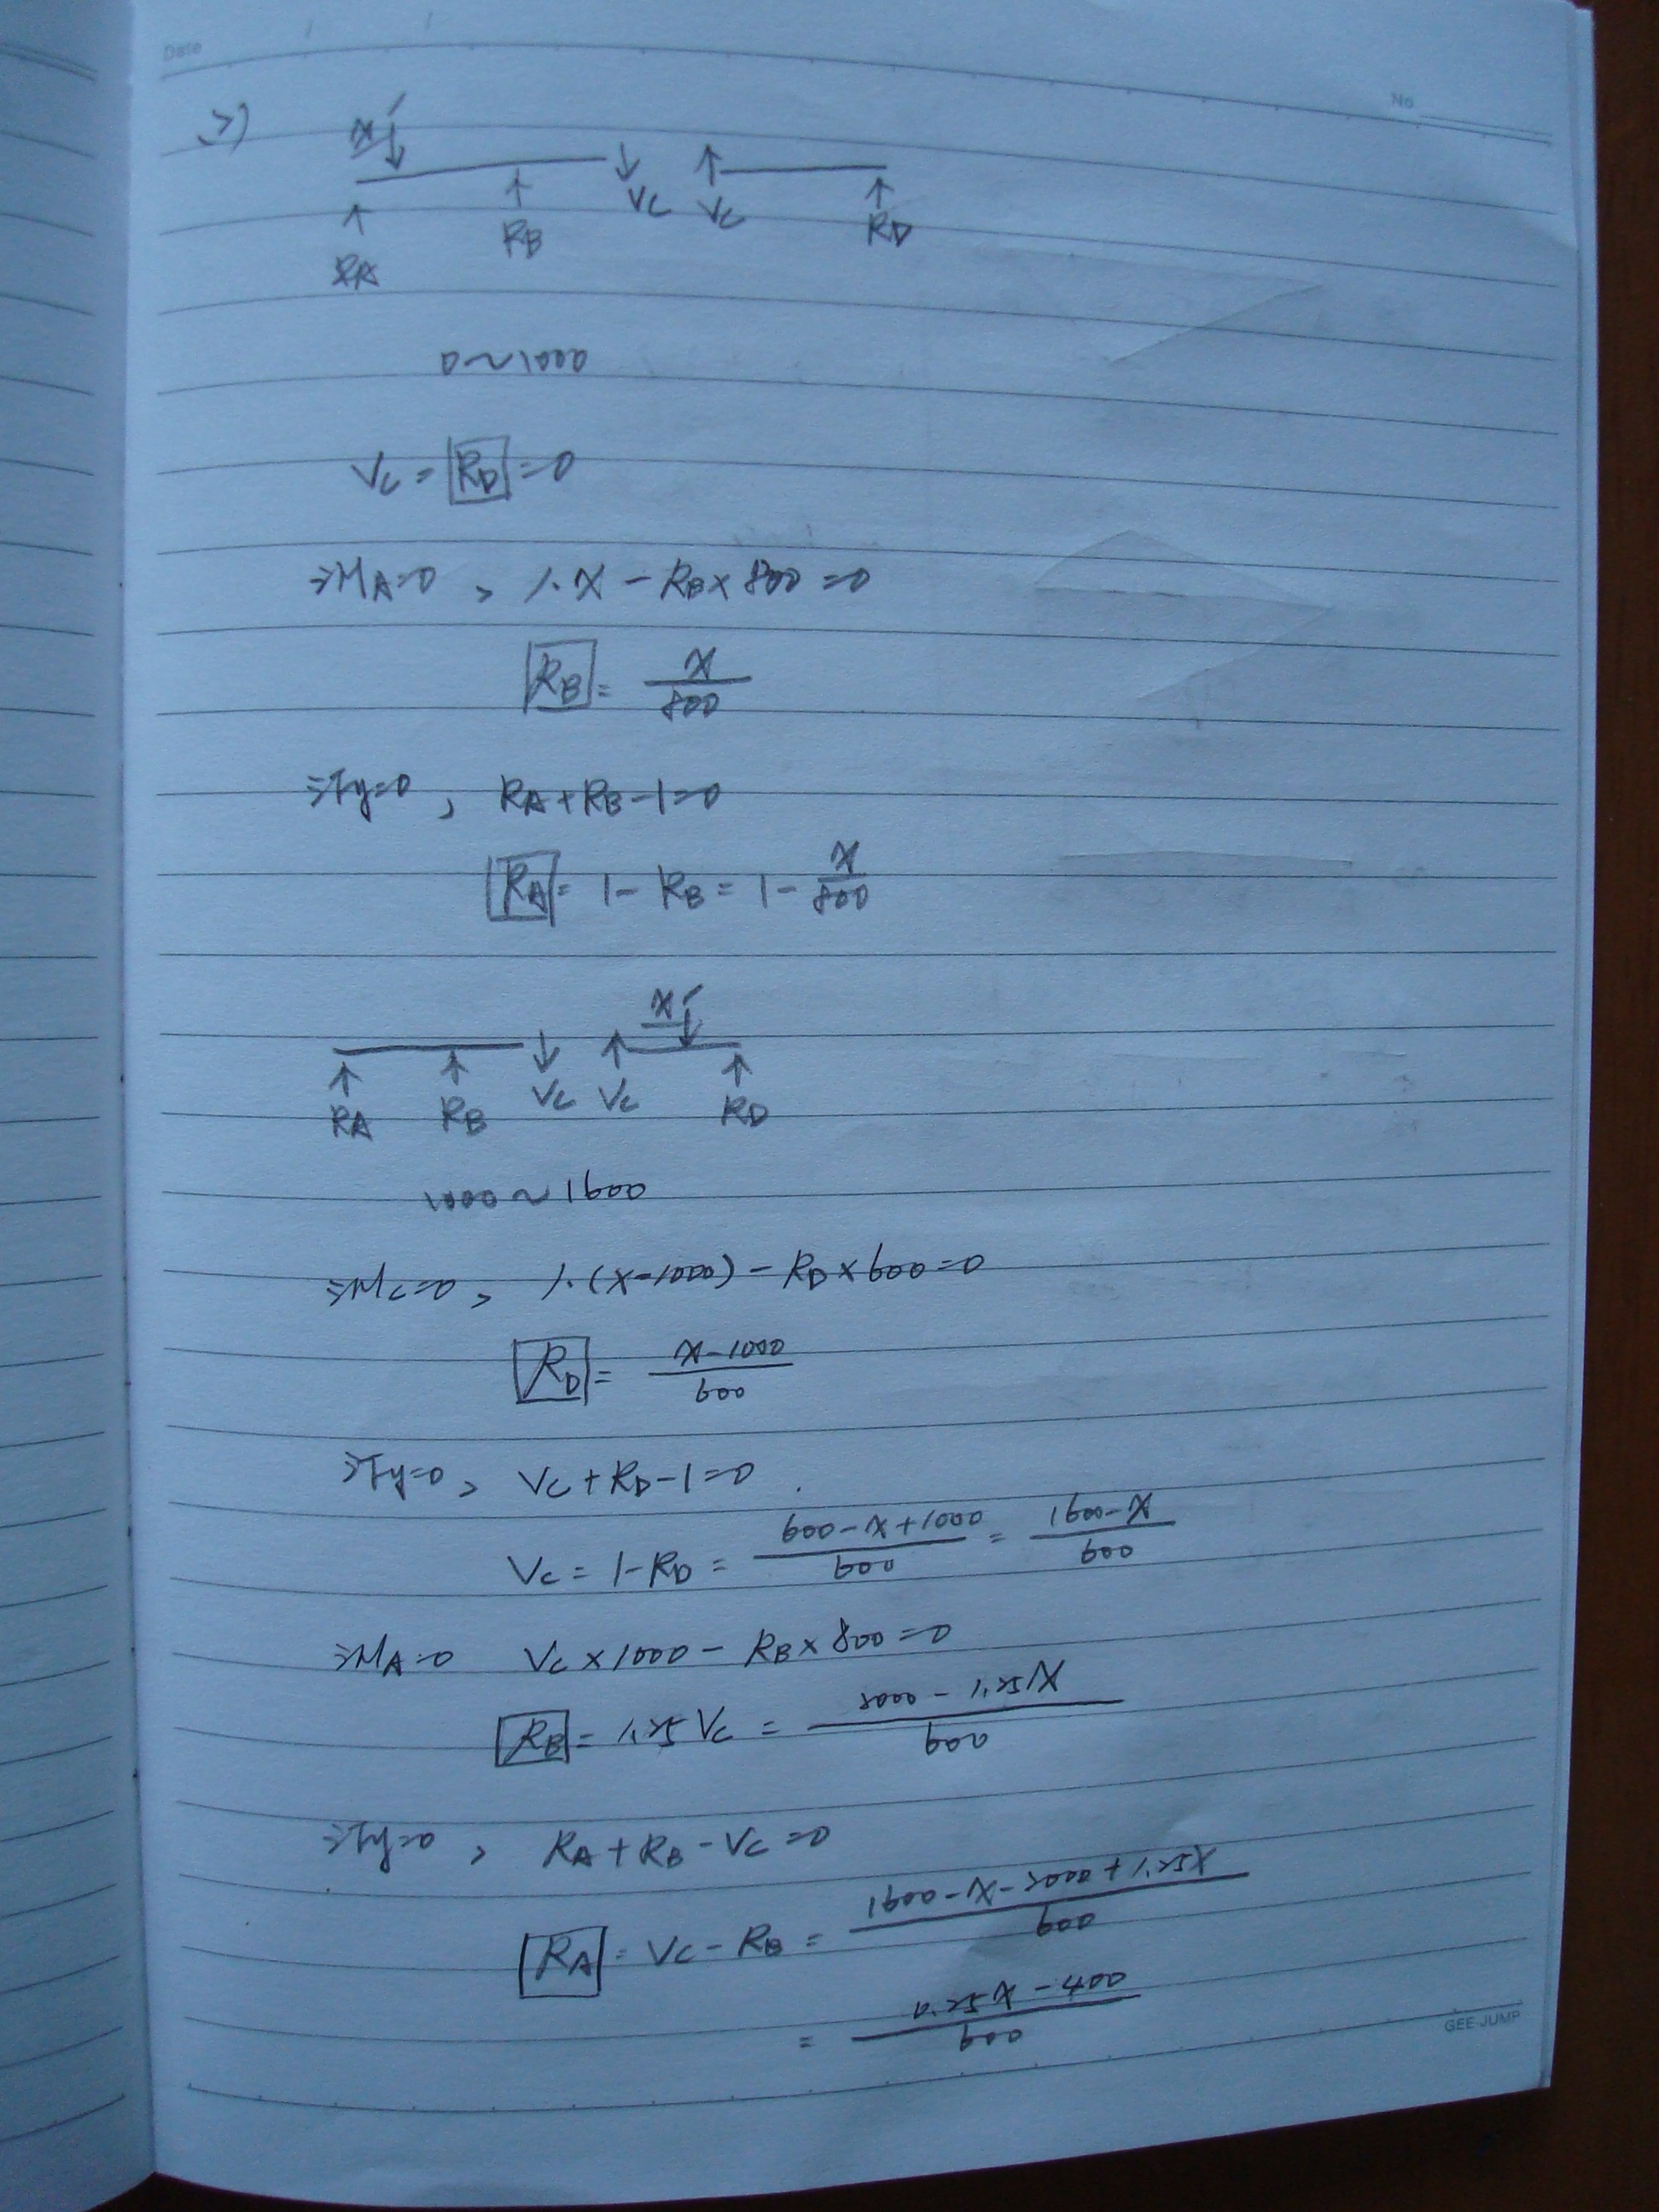 Date
No
2)
x 1
VC VC
RA RB RD
0~1000
VC = RD = 0
ΣMA=0 , 1·x - RB×800=0
RB = x/800
ΣFy=0 , RA+RB-1=0
RA = 1-RB = 1- x/800
x 1
RA RB VC VC RD
1000~1600
ΣMC=0 , 1·(x-1000) - RD×600=0
RD = x-1000/600
ΣFy=0 , VC+RD-1=0
VC = 1-RD = 600-x+1000/600 = 1600-x/600
ΣMA=0 VC×1000 - RB×800=0
RB = 1.25VC = 2000-1.25x/600
ΣFy=0 , RA+RB-VC=0
RA = VC-RB = 1600-x-2000+1.25x/600
= 0.25x-400/600
GEE-JUMP